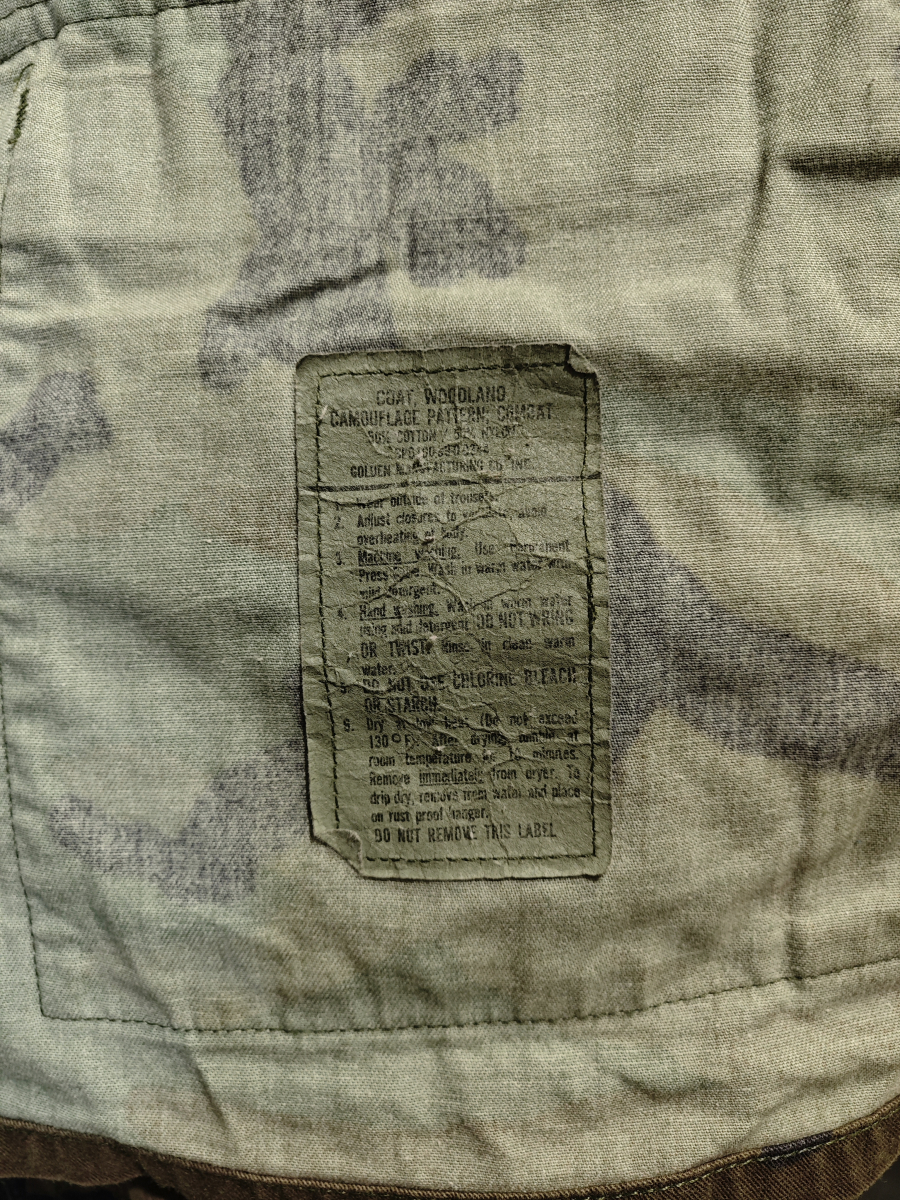 COAT, WOODLAND
CAMOUFLAGE PATTERN, COMBAT
50% COTTON / 50% NYLON
GOLDEN MANUFACTURING CO., INC.
1. Wear outside of trousers.
2. Adjust closures to ventilate, avoid
overheating of body.
3. Machine washing. Use permanent
Press cycle. Wash in warm water with
mild detergent.
4. Hand washing. Wash in warm water
using mild detergent. DO NOT WRING
OR TWIST. Rinse in clean warm
water.
5. DO NOT USE CHLORINE BLEACH
OR STARCH.
6. Dry at low heat (Do not exceed
130°F). After drying, tumble at
room temperature for 10 minutes.
Remove immediately from dryer. To
drip dry, remove from water and place
on rust proof hanger.
DO NOT REMOVE THIS LABEL